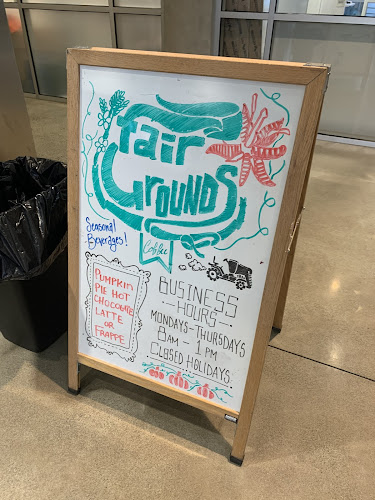 Fair
Grounds
Coffee
Seasonal
Beverages!
PUMPKIN
PIE HOT
CHOCOLATE
LATTE
OR
FRAPPE
BUSINESS
HOURS
MONDAYS-THURSDAYS
8AM - 1PM
CLOSED HOLIDAYS